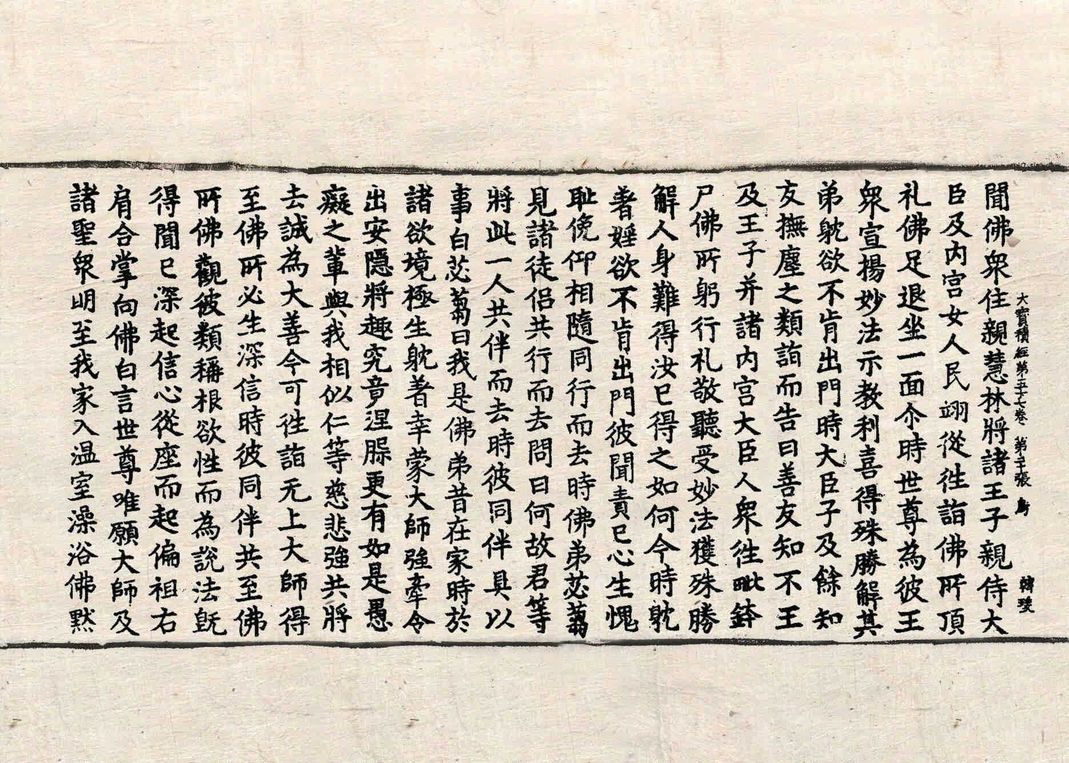 大寶積經第五十七卷 第
聞佛衆住親慧林將諸王子親侍大
臣及內宮女人民翊從徃詣佛所頂
礼佛足退坐一面尒時世尊為彼王
衆宣揚妙法示教利喜得殊勝解其
弟躭欲不肯出門時大臣子及餘知
友撫塵之類詣而告曰善友知不王
及王子并諸內宮大臣人衆徃毗鉢
尸佛所躬行礼敬聽受妙法獲殊勝
解人身難得汝已得之如何今時躭
著婬欲不肯出門彼聞責已心生愧
耻俛仰相隨同行而去時佛弟苾蒭
見諸徒侶共行而去問曰何故君等
將此一人共伴而去時彼同伴具以
事白苾蒭曰我是佛弟昔在家時於
諸欲境極生躭著幸蒙大師強牽令
出安隱將趣究竟涅槃更有如是愚
癡之輩與我相似仁等慈悲強共將
去誠為大善今可徃詣无上大師得
至佛所必生深信時彼同伴共至佛
所佛觀彼類稱根欲性而為說法旣
得聞已深起信心從座而起偏袒右
肩合掌向佛白言世尊唯願大師及
諸聖衆明至我家入温室澡浴佛黙